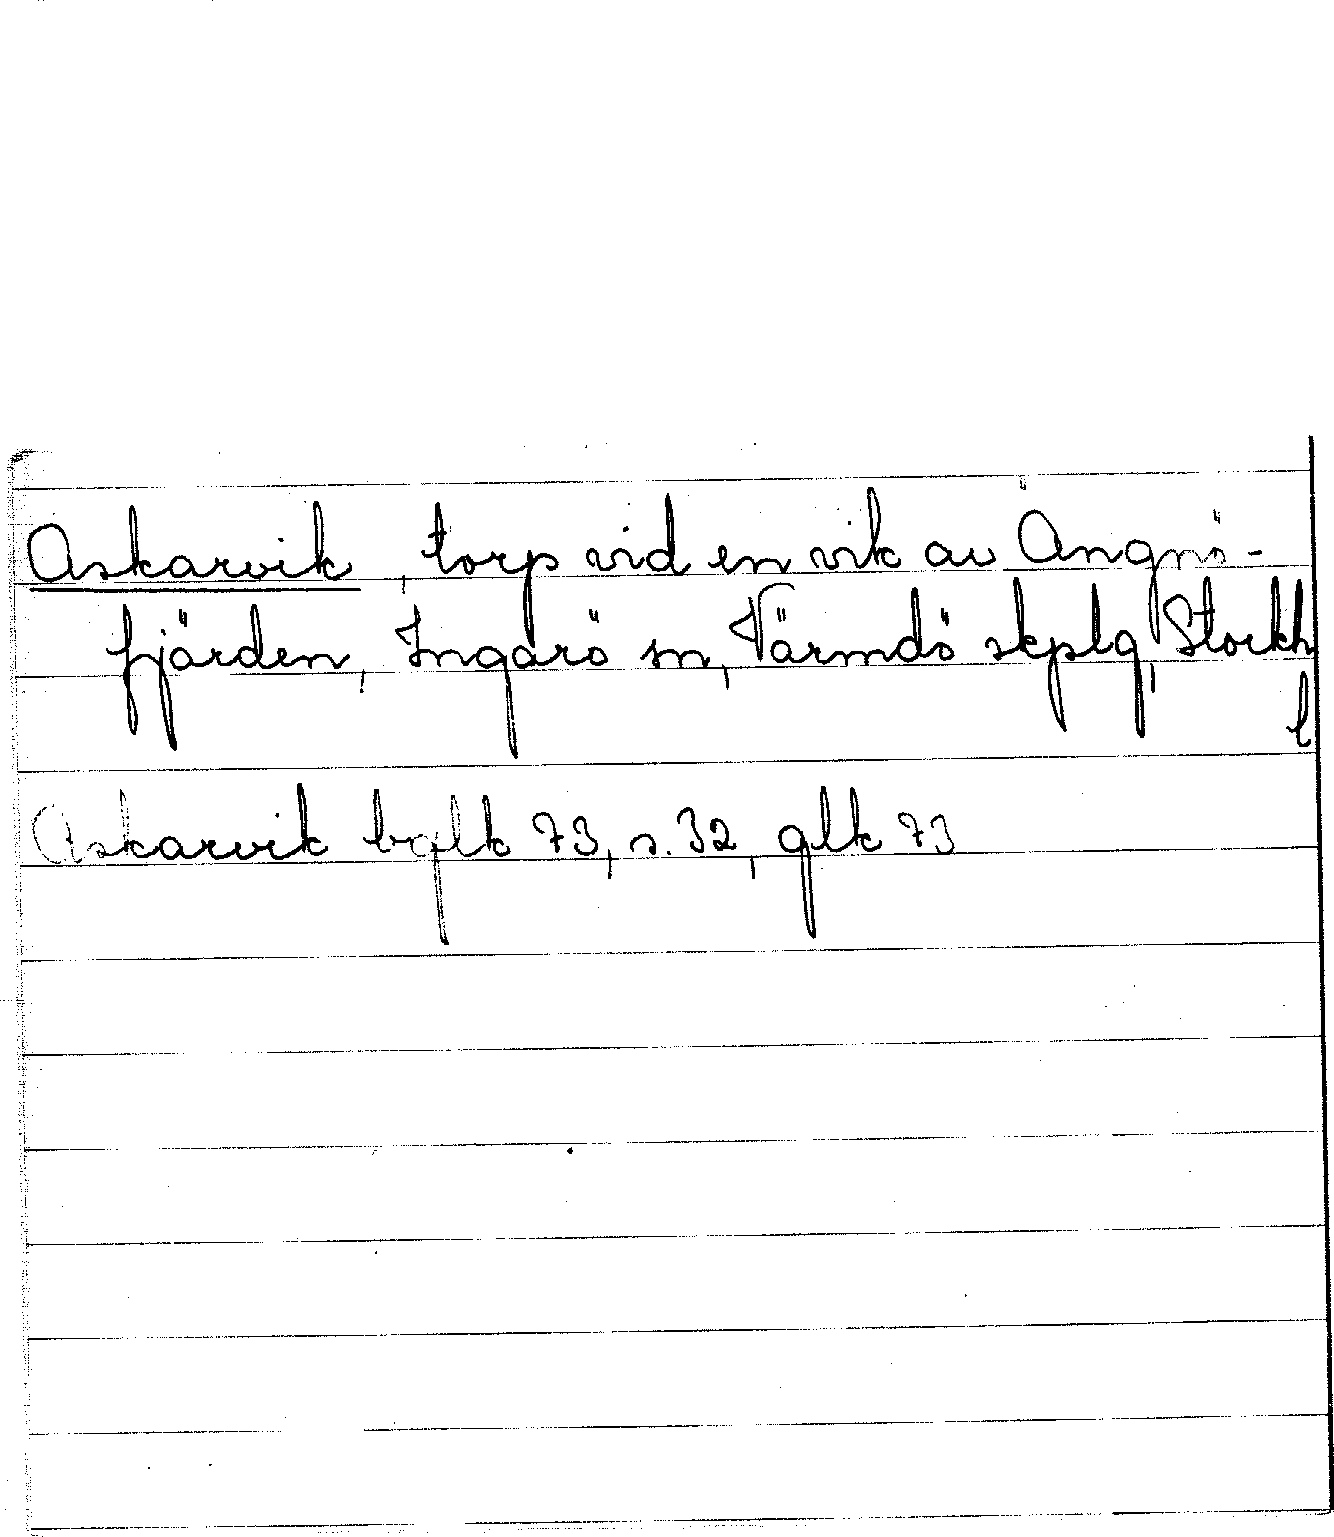 Askarvik, torp vid en vik av Ängnö-
fjärden, Ingarö sn, Värmdö skplg, Stockh
l
Askarvik bglk 73, s. 32, glk 73